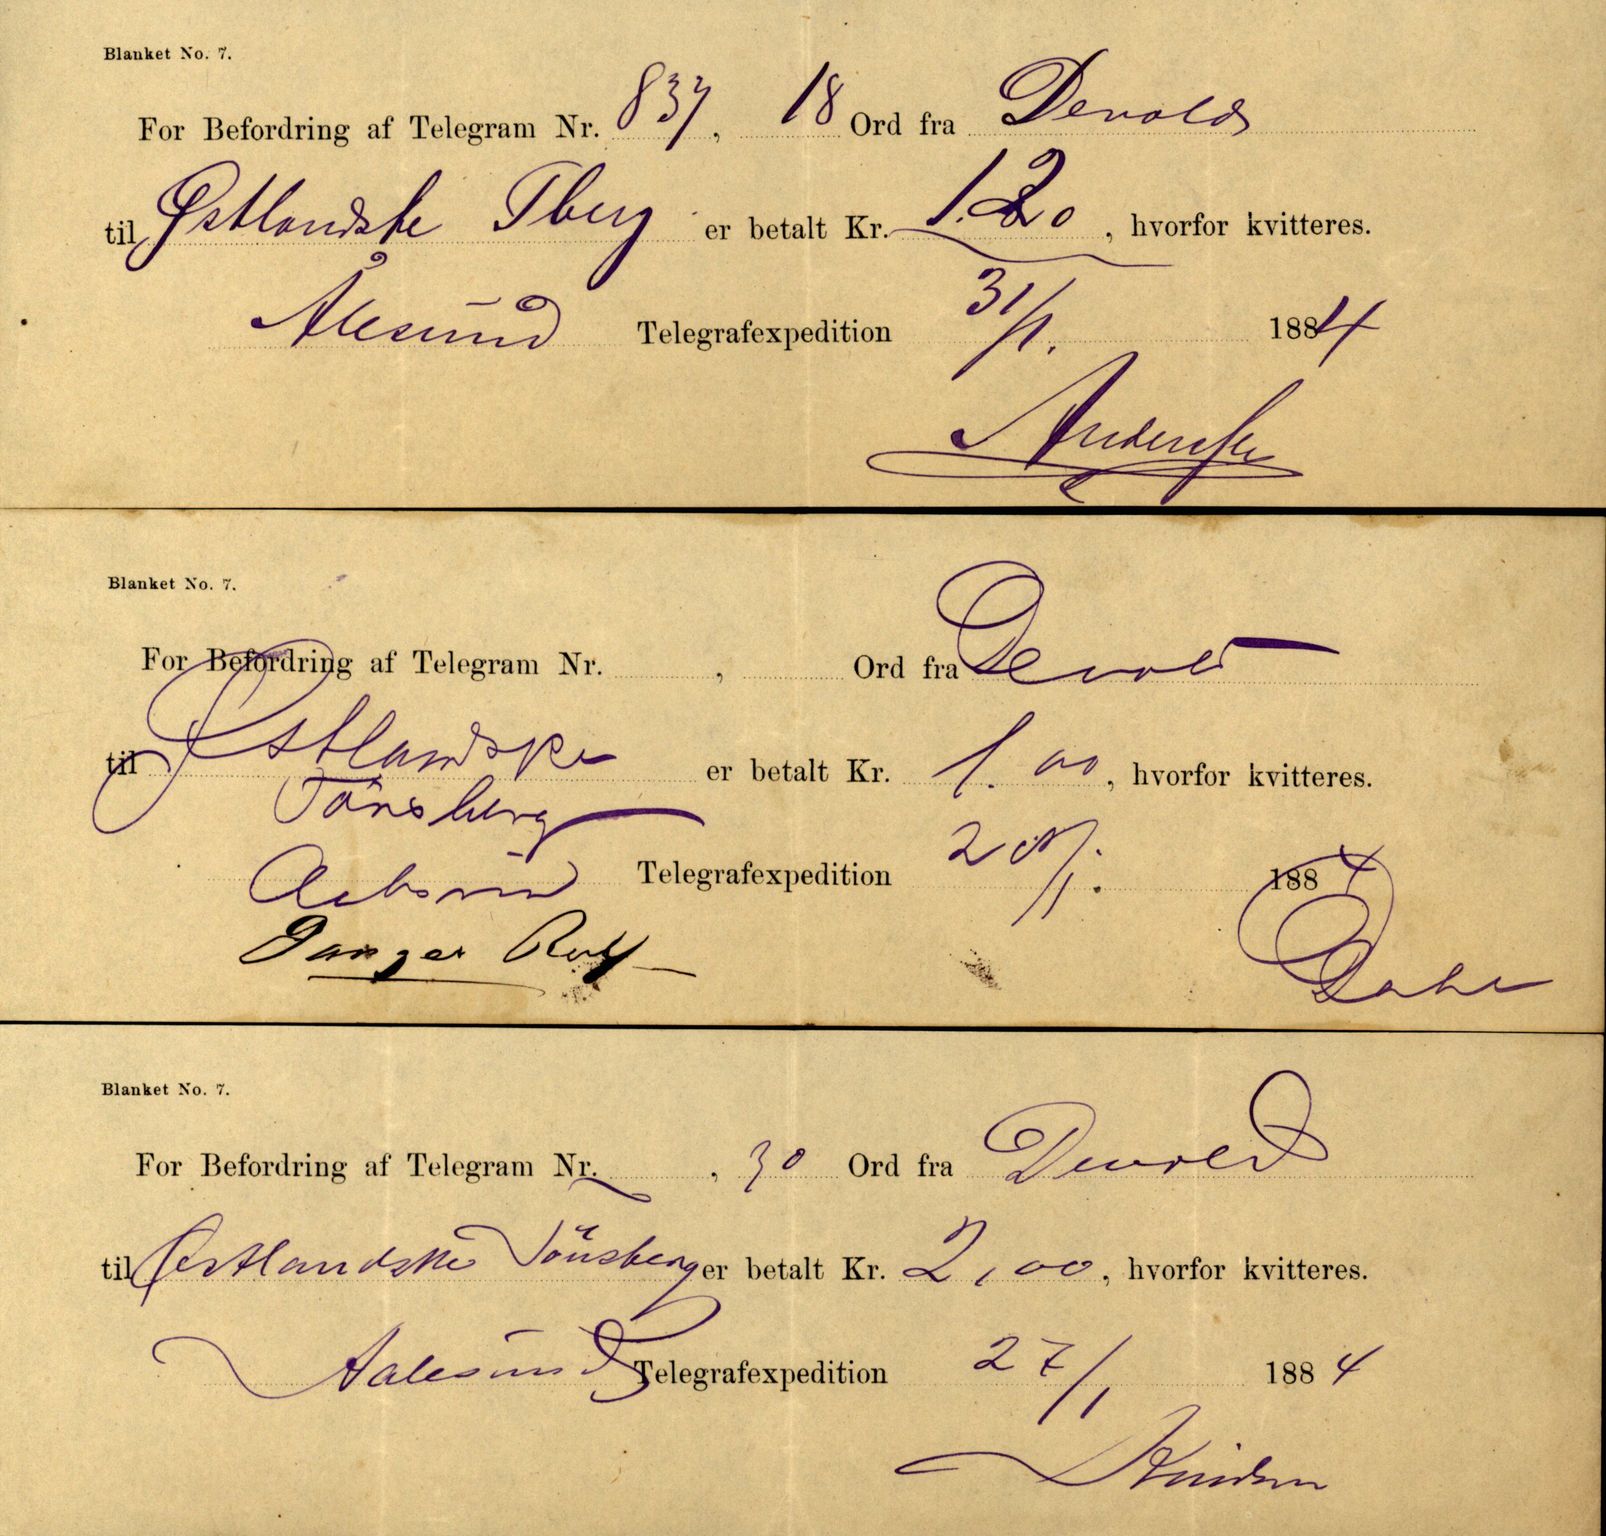 Blanket No. 7.
For Befordring af Telegram Nr. 837, 18 Ord fra Devolds
til Østlandske Tberg er betalt Kr. 1.20, hvorfor kvitteres.
Ålesund Telegrafexpedition 31/1. 1884
Andersen
Blanket No. 7.
For Befordring af Telegram Nr. , Ord fra Devold
til Østlandske er betalt Kr. 1.00, hvorfor kvitteres.
Tönsberg
Aalesund Telegrafexpedition 1884
Danzer
Blanket No. 7.
For Befordring af Telegram Nr. , 30 Ord fra Devold
til Østlandske Tönsberg er betalt Kr. 2,00, hvorfor kvitteres.
Aalesund Telegrafexpedition 27/1 1884
Knudsen